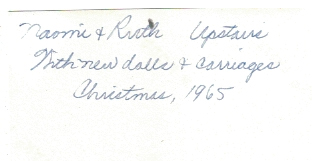 Naomi & Ruth Upstairs
With new dolls & carriages
Christmas, 1965